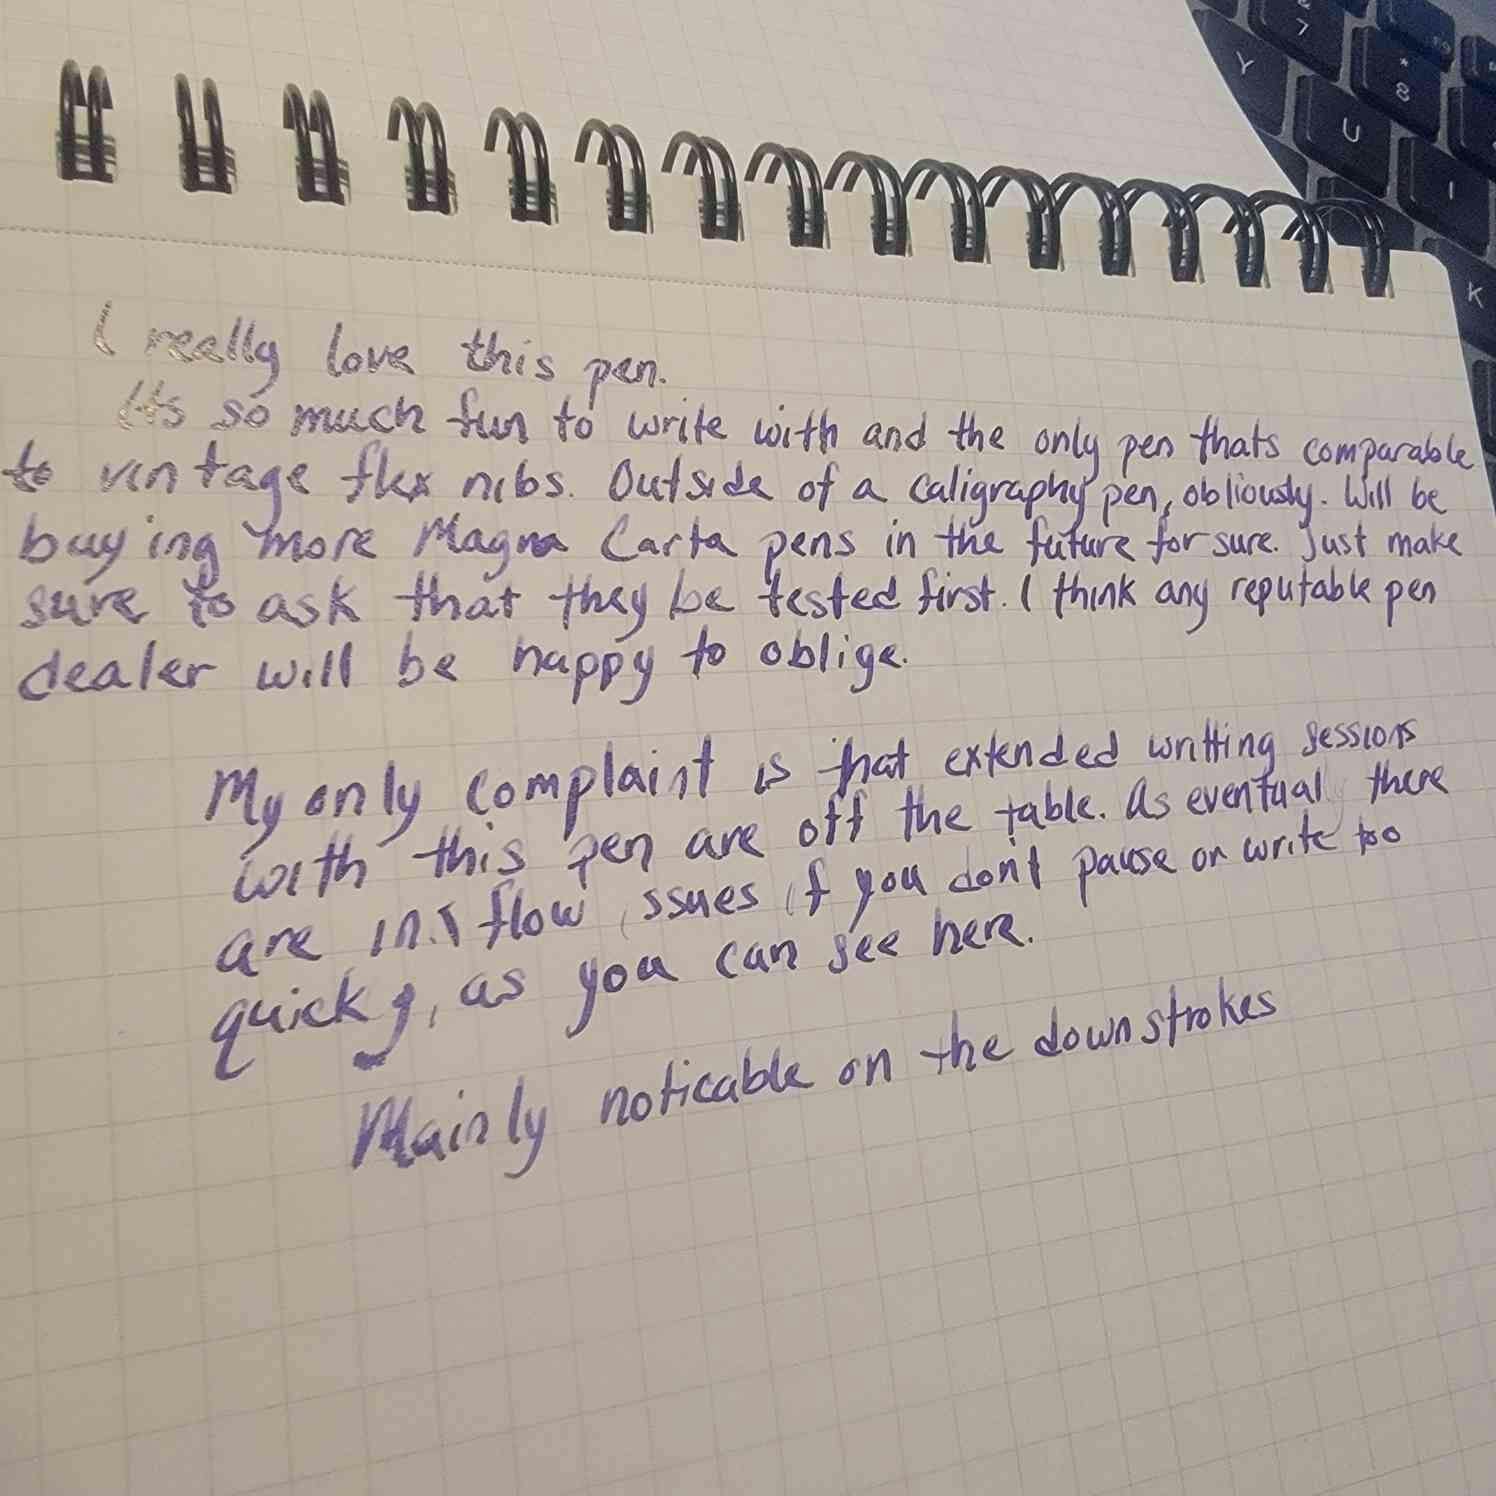 I really love this pen.
Its so much fun to write with and the only pen thats comparable
to vintage flex nibs. Outside of a caligraphy pen, obliously. Will be
buying more Magna Carta pens in the future for sure. Just make
sure to ask that they be tested first. I think any reputable pen
dealer will be happy to oblige.
My only complaint is that extended writting sessions
with this pen are off the table. As eventual there
are flow issues if you don't pause or write too
quickly, as you can see here.
Mainly noticable on the downstrokes
7
Y
*
8
U
I
K